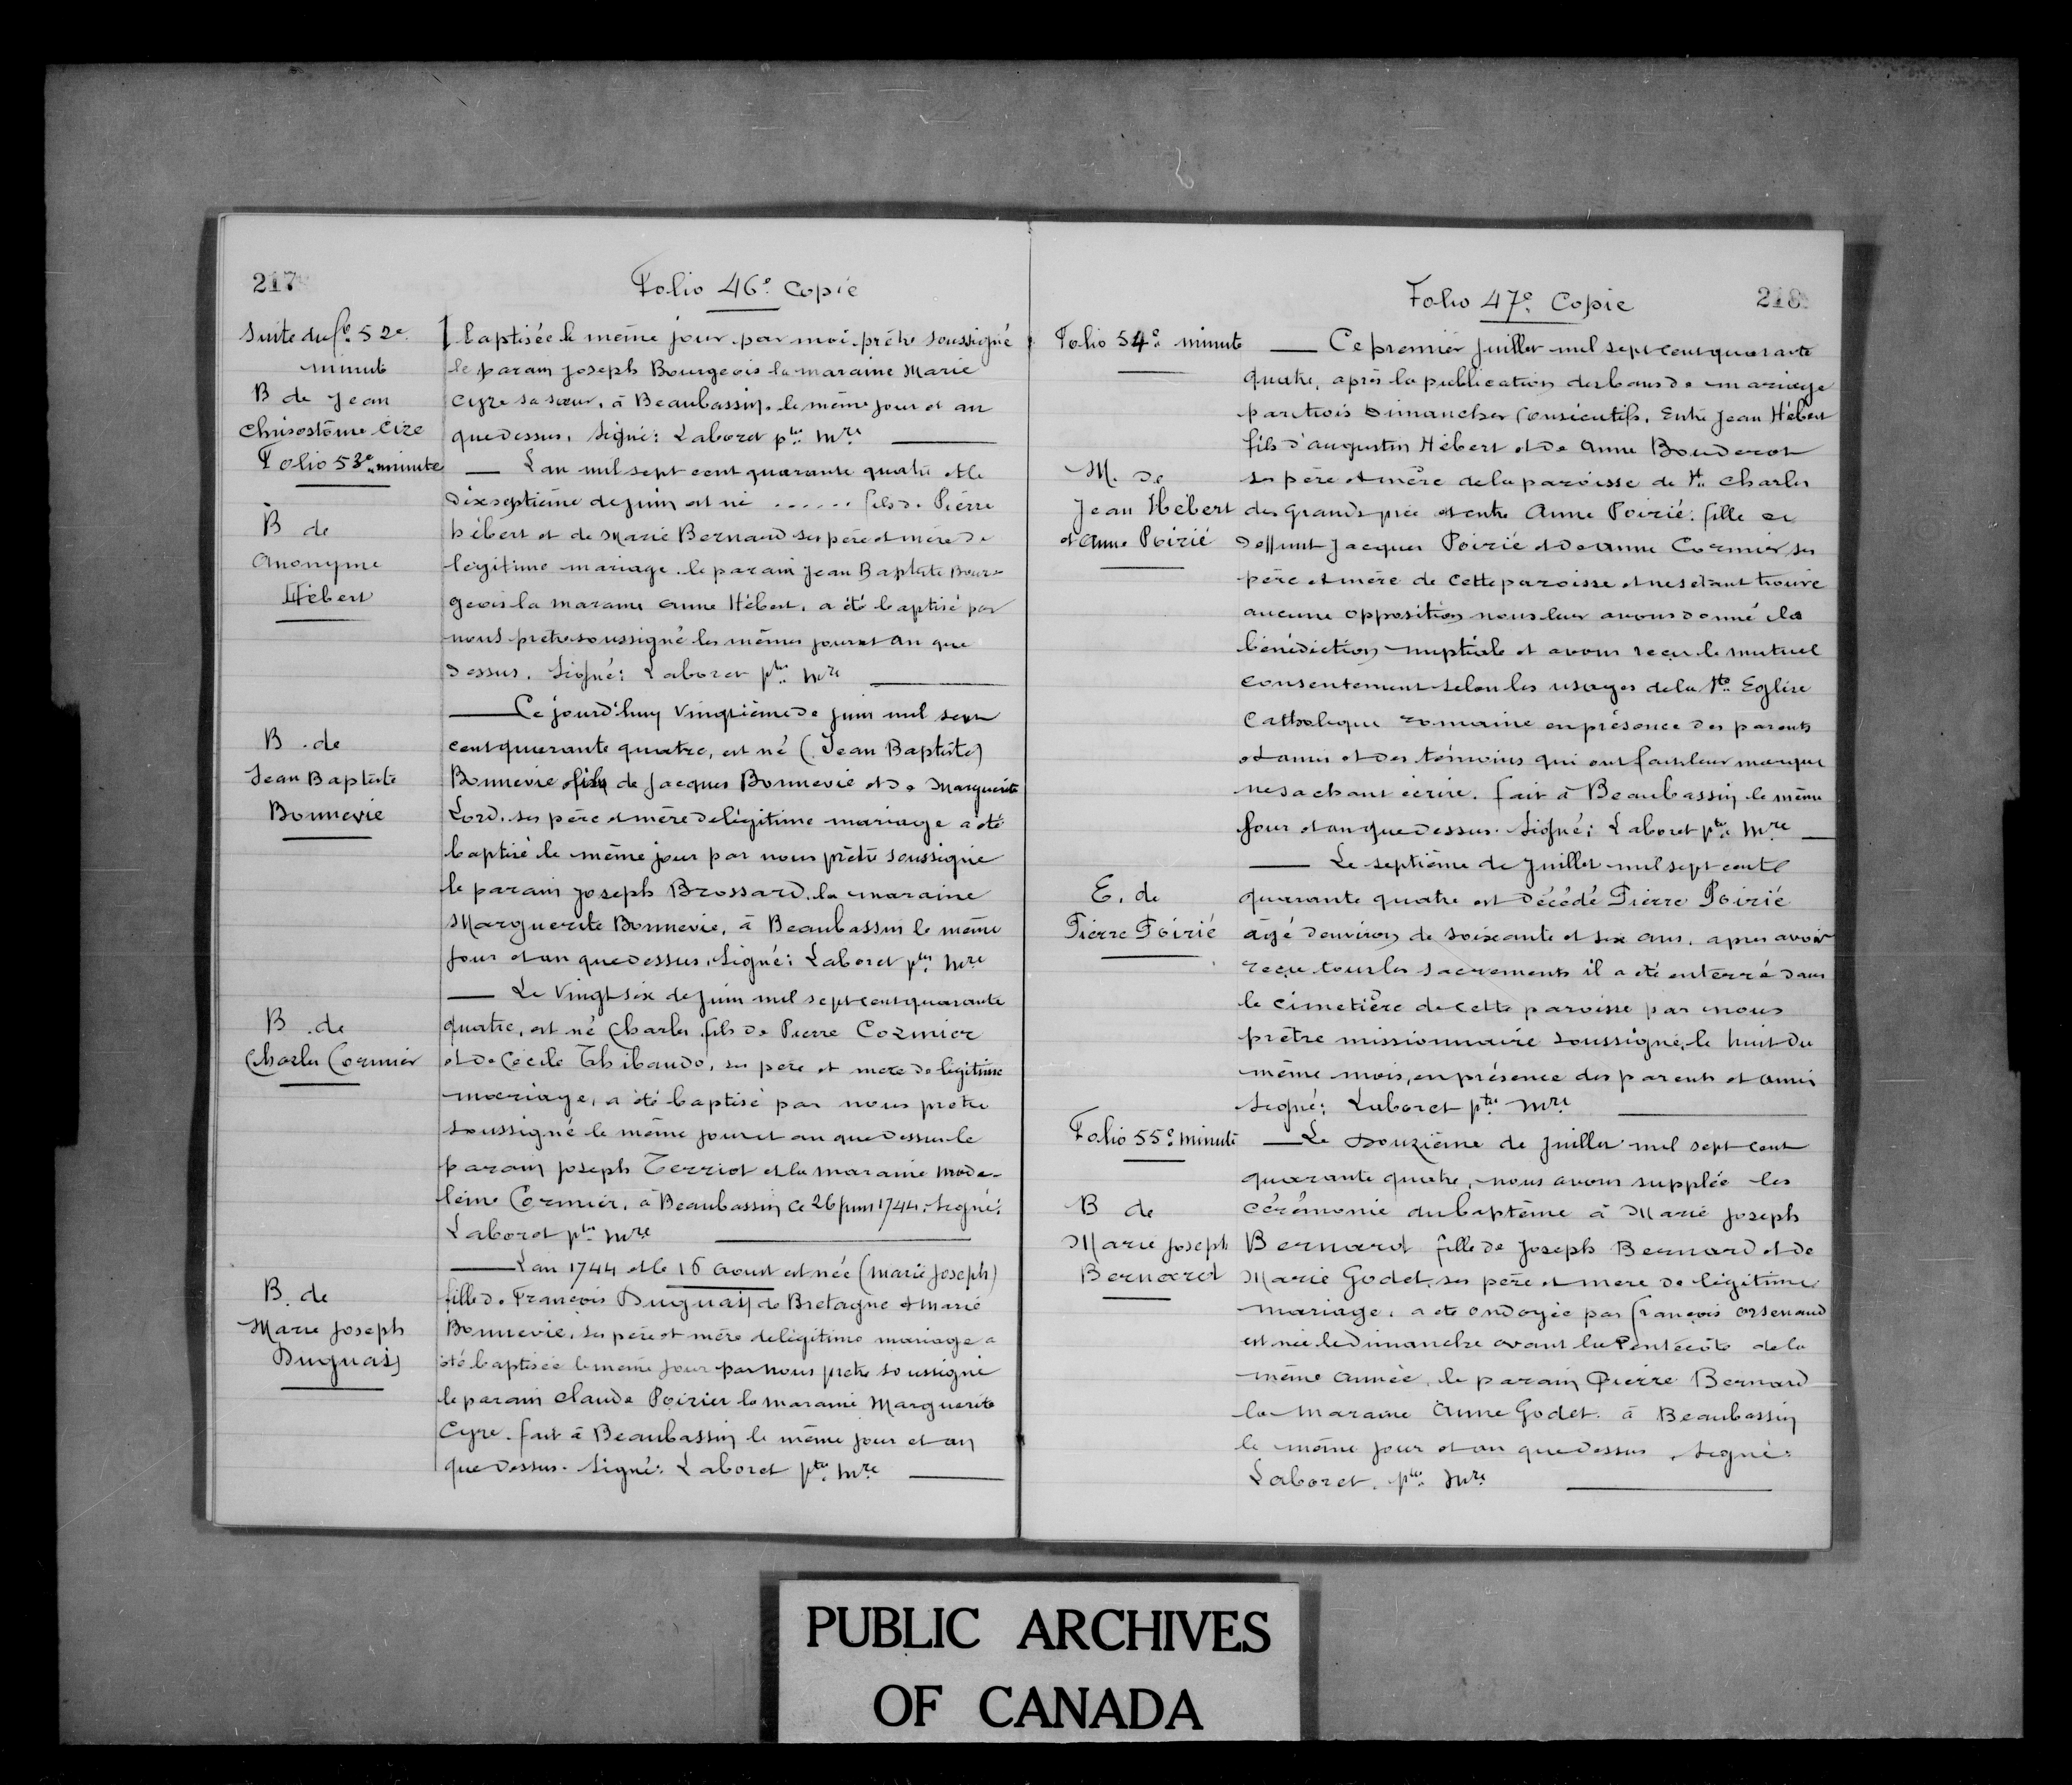 217
Folio 46e. Copie
Suite du fo. 52e.
minute
B de Jean
Chrisostôme Cire
Folio 53e. minute
B de
Anonyme
Hébert
B. de
Jean Baptiste
Bonnevie
B. de
Charles Cormier
B. de
Marie Joseph
Duguay
baptisée le même jour par moi prêtre soussigné
le parain Joseph Bourgeois la maraine Marie
Cyre sa sœur, à Beaubassin, le même jour et an
que dessus. Signé: Laboret ptre. Mre
L'an mil sept cent quarante quatre et le
dixseptième de juin est né ...... fils de Pierre
hébert et de Marie Bernard ses père et mère de
légitime mariage. le parain Jean Baptiste Bour-
geois la maraine anne Hébert, a été baptisé par
nous prêtre soussigné les mêmes jour et an que
dessus. Signé: Laboret ptre. Mre
Ce jourd'huy vingtième de juin mil sept
cent quarante quatre, est né (Jean Baptiste)
Bonnevie fils de Jacques Bonnevie et de Marguerite
Lord. ses père et mère de légitime mariage a été
baptisé le même jour par nous prêtre soussigné
le parain Joseph Brossard. la maraine
Marguerite Bonnevie, à Beaubassin le même
jour et an que dessus. Signé: Laboret ptre. Mre
Le vingt six de juin mil sept cent quarante
quatre, est né Charles fils de Pierre Cormier
et de Cecile Thibaudo, ses père et mere de légitime
mariage, a été baptisé par nous prêtre
soussigné le même jour et an que dessus le
parain Joseph Terriot et la maraine Made-
leine Cormier, à Beaubassin ce 26 juin 1744. Signé:
Laboret ptre. Mre
L'an 1744 et le 16 aoust est née (Marie Joseph)
fille de François Duguay de Bretagne et Marie
Bonnevie, ses père et mère de légitime mariage a
été baptisée le même jour par nous prêtre soussigné
le parain Claude Poirier la maraine Marguerite
Cyre. fait à Beaubassin le même jour et an
que dessus. Signé: Laboret ptre. Mre
Folio 47e. Copie
218
Folio 54e. minute
M. de
Jean Hébert
et Anne Poirié
E. de
Pierre Poirié
Folio 55e. minute
B de
Marie Joseph
Bernard
Ce premier juillet mil sept cent quarante
quatre, après la publication des bans de mariage
par trois Dimanches consécutifs. Entre Jean Hébert
fils d'augustin Hébert et de Anne Bouderot
ses père et mère de la paroisse de St. Charles
des grands prée et entre Anne Poirié. fille de
deffunt Jacques Poirié et de Anne Cormier ses
père et mère de cette paroisse et ne s'etant trouvé
aucune opposition nous leur avons donné la
bénédiction nuptiale et avons reçu le mutuel
consentement selon les usages de la Ste. Eglise
Catholique romaine en présence des parents
et amis et des témoins qui ont fait leur marque
ne sachant écrire. fait à Beaubassin le même
jour et an que dessus. Signé: Laboret ptre. Mre
Le septième de Juillet mil sept cent
quarante quatre est décédé Pierre Poirié
âgé denviron de soixante et six ans. apres avoir
reçu tous les sacrements il a été enterré dans
le cimetière de cette paroisse par nous
prêtre missionnaire soussigné, le huit du
même mois, en présence des parents et amis
Signé: Laboret ptre Mre
Le Douzième de Juillet mil sept cent
quarante quatre, nous avons supplée les
cérémonie du baptême à Marie Joseph
Bernard fille de Joseph Bernard et de
Marie Godet, ses père et mere de légitime
mariage, a été ondoyée par françois arsenaud
est née le Dimanche avant la Pentécôte de la
même année, le parain Pierre Bernard
la maraine Anne Godet. à Beaubassin
le même jour et an que dessus. Signé:
Laboret. ptre. Mre
PUBLIC ARCHIVES
OF CANADA